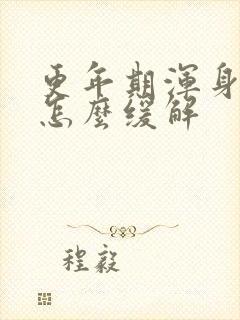 更年期渾身
怎麼缓解
程毅